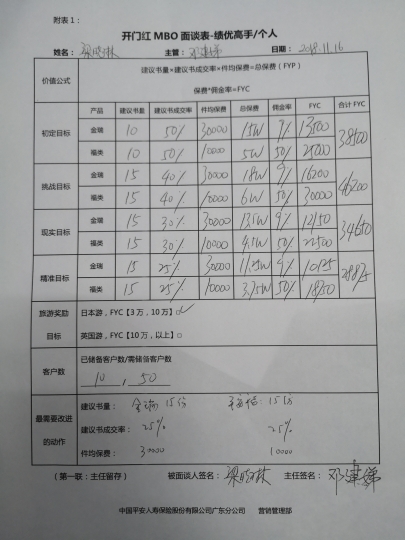 附表 1：
开门红 MBO 面谈表-绩优高手/个人
姓名： 梁晓琳 主管： 邓建锑 日期： 2018.11.16
价值公式 建议书量×建议书成交率×件均保费=总保费（FYP）
保费*佣金率=FYC
产品 建议书量 建议书成交率 件均保费 总保费 佣金率 FYC 合计 FYC
初定目标 金瑞 10 50% 30000 15W 9% 13500 38500
福类 10 50% 10000 5W 50% 25000
挑战目标 金瑞 15 40% 30000 18W 9% 16200 46200
福类 15 40% 10000 6W 50% 30000
现实目标 金瑞 15 30% 30000 13.5W 9% 12150 34650
福类 15 30% 10000 4.5W 50% 22500
精准目标 金瑞 15 25% 30000 11.25W 9% 10125 28875
福类 15 25% 10000 3.75W 50% 18750
旅游奖励目标 日本游，FYC【3 万，10 万】□✓
英国游，FYC【10 万，以上】□
客户数 已储备客户数/需储备客户数
10 , 50
最需要改进的动作 建议书量： 金瑞 15份 福: 15份
建议书成交率： 25% 25%
件均保费： 30000 10000
（第一联：主任留存） 被面谈人签名： 梁晓琳 主任签名： 邓建锑
中国平安人寿保险股份有限公司广东分公司 营销管理部